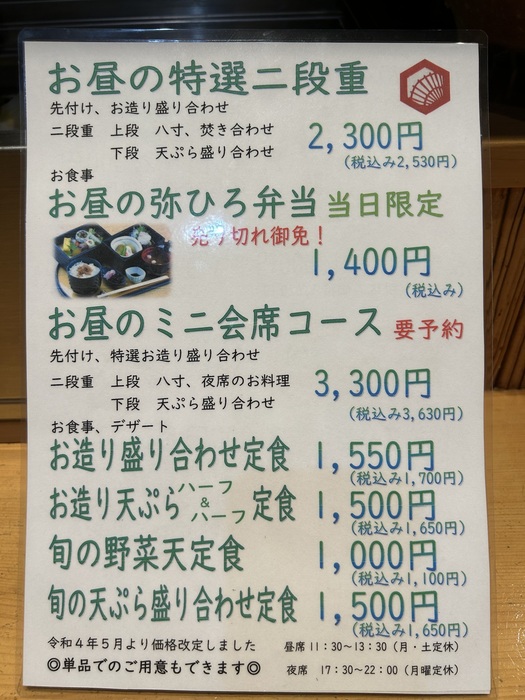 お昼の特選二段重
先付け、お造り盛り合わせ
二段重 上段 八寸、焚き合わせ
2,300円
下段 天ぷら盛り合わせ
(税込み2,530円)
お食事
お昼の弥ひろ弁当 当日限定
売り切れ御免！
1,400円
(税込み)
お昼のミニ会席コース 要予約
先付け、特選お造り盛り合わせ
二段重 上段 八寸、夜席のお料理
3,300円
下段 天ぷら盛り合わせ
(税込み3,630円)
お食事、デザート
お造り盛り合わせ定食 1,550円
(税込み1,700円)
お造り天ぷらハーフ&ハーフ定食 1,500円
(税込み1,650円)
旬の野菜天定食 1,000円
(税込み1,100円)
旬の天ぷら盛り合わせ定食 1,500円
(税込み1,650円)
令和4年5月より価格改定しました
昼席 11：30~13：30 (月・土定休)
◎単品でのご用意もできます◎
夜席 17：30~22：00 (月曜定休)